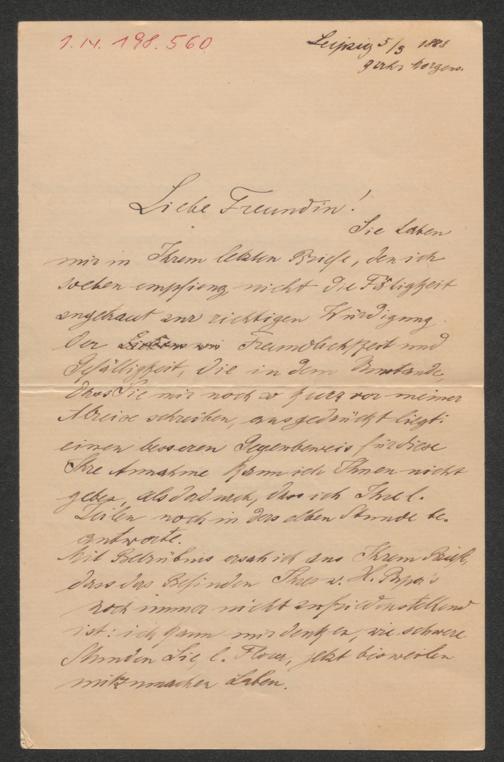 I.N. 198.560
Leipzig 5/3 188
Liebe Freundin!
Sie haben
mir in Ihrem letzten Briefe, den ich
soeben empfieng, nicht die Fähigkeit
zugetraut zur richtigen Würdigung
der Freundlichkeit und
Gefälligkeit, die in dem Umstande,
dass Sie mir noch so kurz vor meiner
Abreise schreiben, ausgedrückt liegt:
einen besseren Gegenbeweis für diese
Ihre Annahme kann ich Ihnen nicht
geben, als dadurch, dass ich Ihre l.
Zeilen noch in derselben Stunde be-
antworte.
Mit Betrübnis ersah ich aus Ihrem Briefe,
dass das Befinden Ihres v. H. Papa's
noch immer nicht zufriedenstellend
ist: ich kann mir denken, wie schwere
Stunden Sie, l. Flora, jetzt bisweilen
mitzumachen haben.